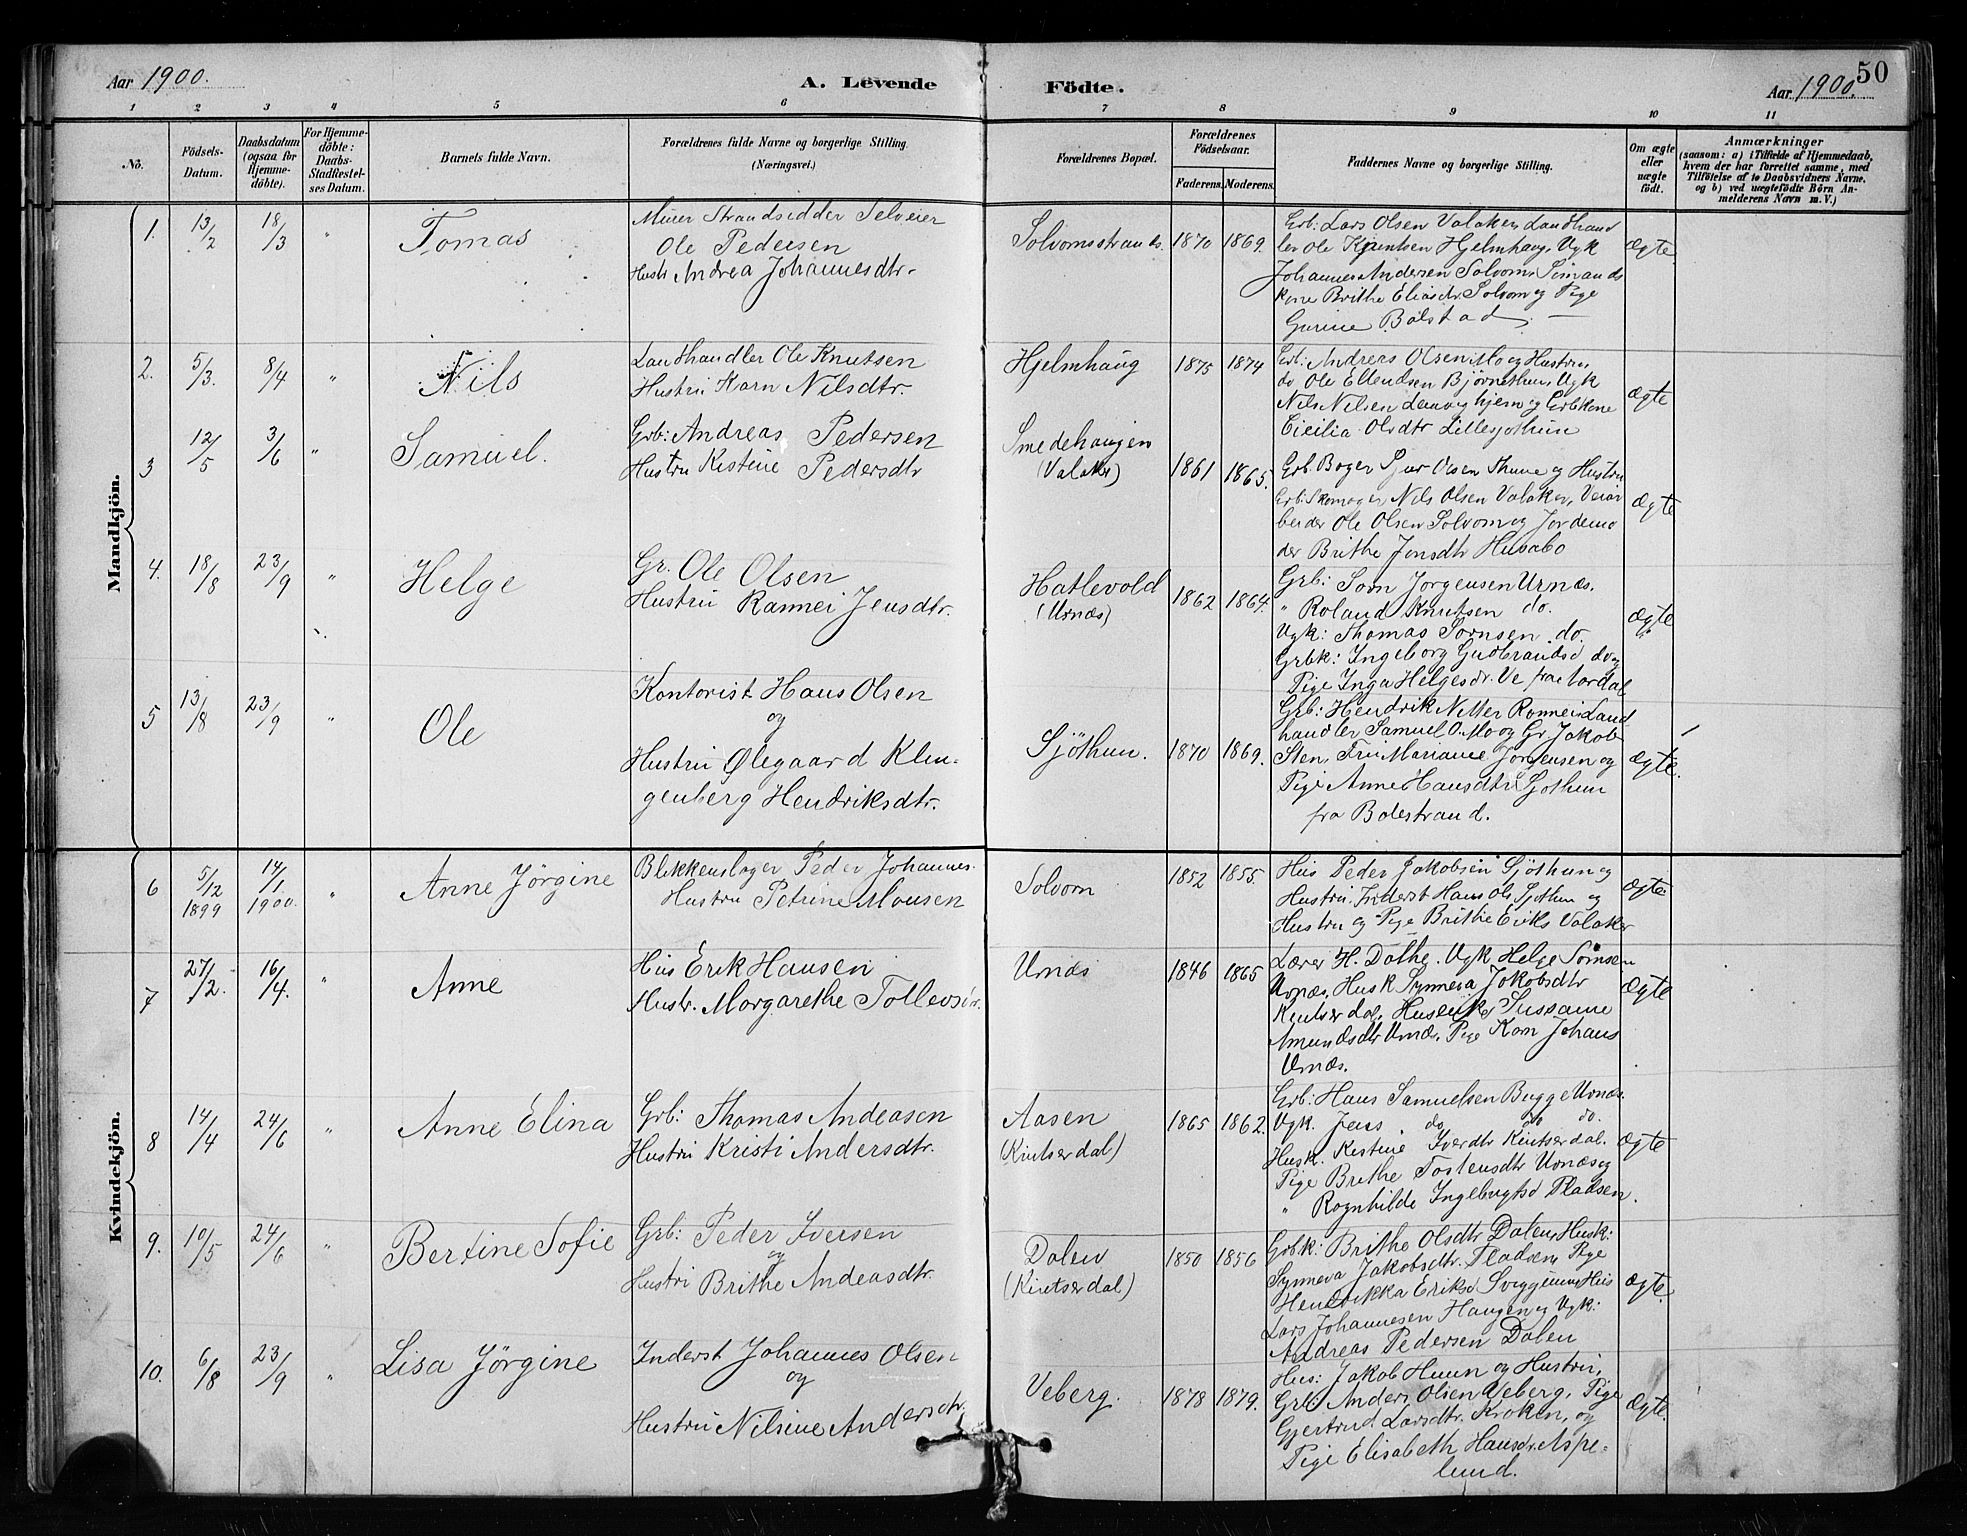 50
Aar 1900.
A. Levende
Födte.
Aar 1900.
1 2 3 4 5 6 7 8 9 10 11
No.
Födsels-
Datum.
Daabsdatum
(ogsaa for
Hjemme-
döbte).
For Hjemme-
döbte:
Daabs-
Stadfæstel-
ses Datum.
Barnets fulde Navn.
Forældrenes fulde Navne og borgerlige Stilling.
(Næringsvei.)
Forældrenes Bopæl.
Forældrenes
Födselsaar.
Faderens. Moderens.
Faddernes Navne og borgerlige Stilling.
Om ægte
eller
uægte
födt.
Anmærkninger
(saasom: a) i Tilfælde af Hjemmedaab,
hvem der har forrettet samme, med
Tilföielse af to Daabsvidners Navne,
og b) ved uægtefödte Börn An-
melderens Navn m. V.)
Mandkjön.
1. 13/2 18/3 " Tomas
Murer Strandsidder Selveier
Ole Pedersen
Hustr Andrea Johannesdtr.
Solvomsstrands. 1870 1869.
Grb: Lars Olsen Valaker, Landhand
ler Ole Knutsen Hjelmhaug, Ugk
Johannes Andersen Solvom,
kone Brithe Eliasdtr Solvom og Pige
Gurine Bolstad.
Ægte
2. 5/3. 8/4 " Nils
Landhandler Ole Knutsen
Hustru Karn Nilsdtr.
Hjelmhaug 1875 1874
Grb: Andreas Olsen Mo og Hustru,
do Ole Ellendsen Bjørnethun, Ugk
Nils Nilsen og Grbkone
Cicilia Olsdtr Lillesjøthun
Ægte
3 12/5 3/6 " Samuel.
Grb: Andreas Pedersen
Hustru Kestine Pedersdtr
Smedehaugen
(Valaker) 1861 1865.
Grb Sjur Olsen Thune og Hustru
Grb: Skomager Nils Olsen Valaker, Veiar
beider Ole Olsen Solvom og Jordemo
der Brithe Jonsdtr Husabø
Ægte
4. 18/8 23/9 " Helge
Gr. Ole Olsen
Hustru Rannei Jensdtr.
Hatlevold
(Urnæs) 1862 1864.
Grb: Sørn Jørgensen Urnæs.
" Roland Knutsen do.
Ugk: Thomas Sørnsen do.
Grbk: Ingeborg Gudbrandsd do og
Pige Inga Helgesdr. Ve fra Aardal
Ægte
5 13/8 23/9 " Ole
Kontorist Hans Olsen
og
Hustru Ølegaard Klin-
genberg Hendriksdtr.
Sjöthun. 1870 1869.
Grb: Hendrik Nitter Ronnei, Land-
handler Samuel O. Mo og Gr Jakob
Sten, Fru Mariane Jørgensen og
Pige Anne Hansdtr Sjøthun
fra Balestrand.
Ægte.
Kvindekjön.
6 5/12 1899 14/1. 1900. " Anne Jörgine
Blikkenslager Peder Johannes.
Hustru Petrine Monsen
Solvorn 1852 1855.
Hus Peder Jakobsen Sjöthun og
Hustru. Inderst Hans Ols Sjøthun og
Hustru og Pige Brithe Eriks Valaker
Ægte
7 27/2. 16/4. " Anne
Hus Erik Hansen
Hustr. Margarethe Tollevsdr.
Urnæs 1846 1865
Lærer H. Dalhe. Ugk Helge Sørnsen
Urnæs, Husk Synneva Jakobsdtr
Kintserdal, Sussanne
Amundsdtr Urnæs. Pige Karn Johans
Urnæs.
Ægte
8 14/4 24/6 " Anne Elina
Grb: Thomas Andeasen
Hustru Kristi Andersdtr.
Aasen
(Kintserdal) 1865 1862.
Grb: Hans Samuelsen Bugge Urnæs.
Ugk. Jens do do do.
Husk. Kestine Iverdtr Kintserdal.
Pige Brithe Tostensdtr Urnæs og
" Rognhilde Ingebrigtsd Pladsen.
Ægte
9. 10/5 24/6 " Bertine Sofie
Grb: Peder Iversen
og
Hustru Brithe Andeasdtr.
Dalen
(Kintserdal) 1850 1856
Grbk: Brithe Olsdtr Dalen, Husk:
Synneva Jakobsdtr. Pladsen, Pige
Hendrikka Eriksd Hus
Lars Johannesen Haugen og Ugk:
Andreas Pedersen Dalen
Ægte.
10. 6/8 23/9 " Lisa Jörgine
Inderst Johannes Olsen
og
Hustru Nilsine Andersdtr.
Veberg. 1878 1879.
Hus: Jakob Huun og Hustru,
Grb: Anders Olsen Veberg, Pige
Gjertrud Larsdtr. Kroken, og
Pige Elisabeth Hansdr. Aspe-
lund.
Ægte.